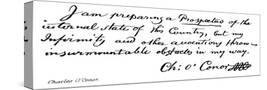 I am preparing a Prospectus of the
internal State of this Country, but my
Infirmity and other avocations throw
insurmountable obstacles in my way.
Ch: O'Conor
Charles O'Conor